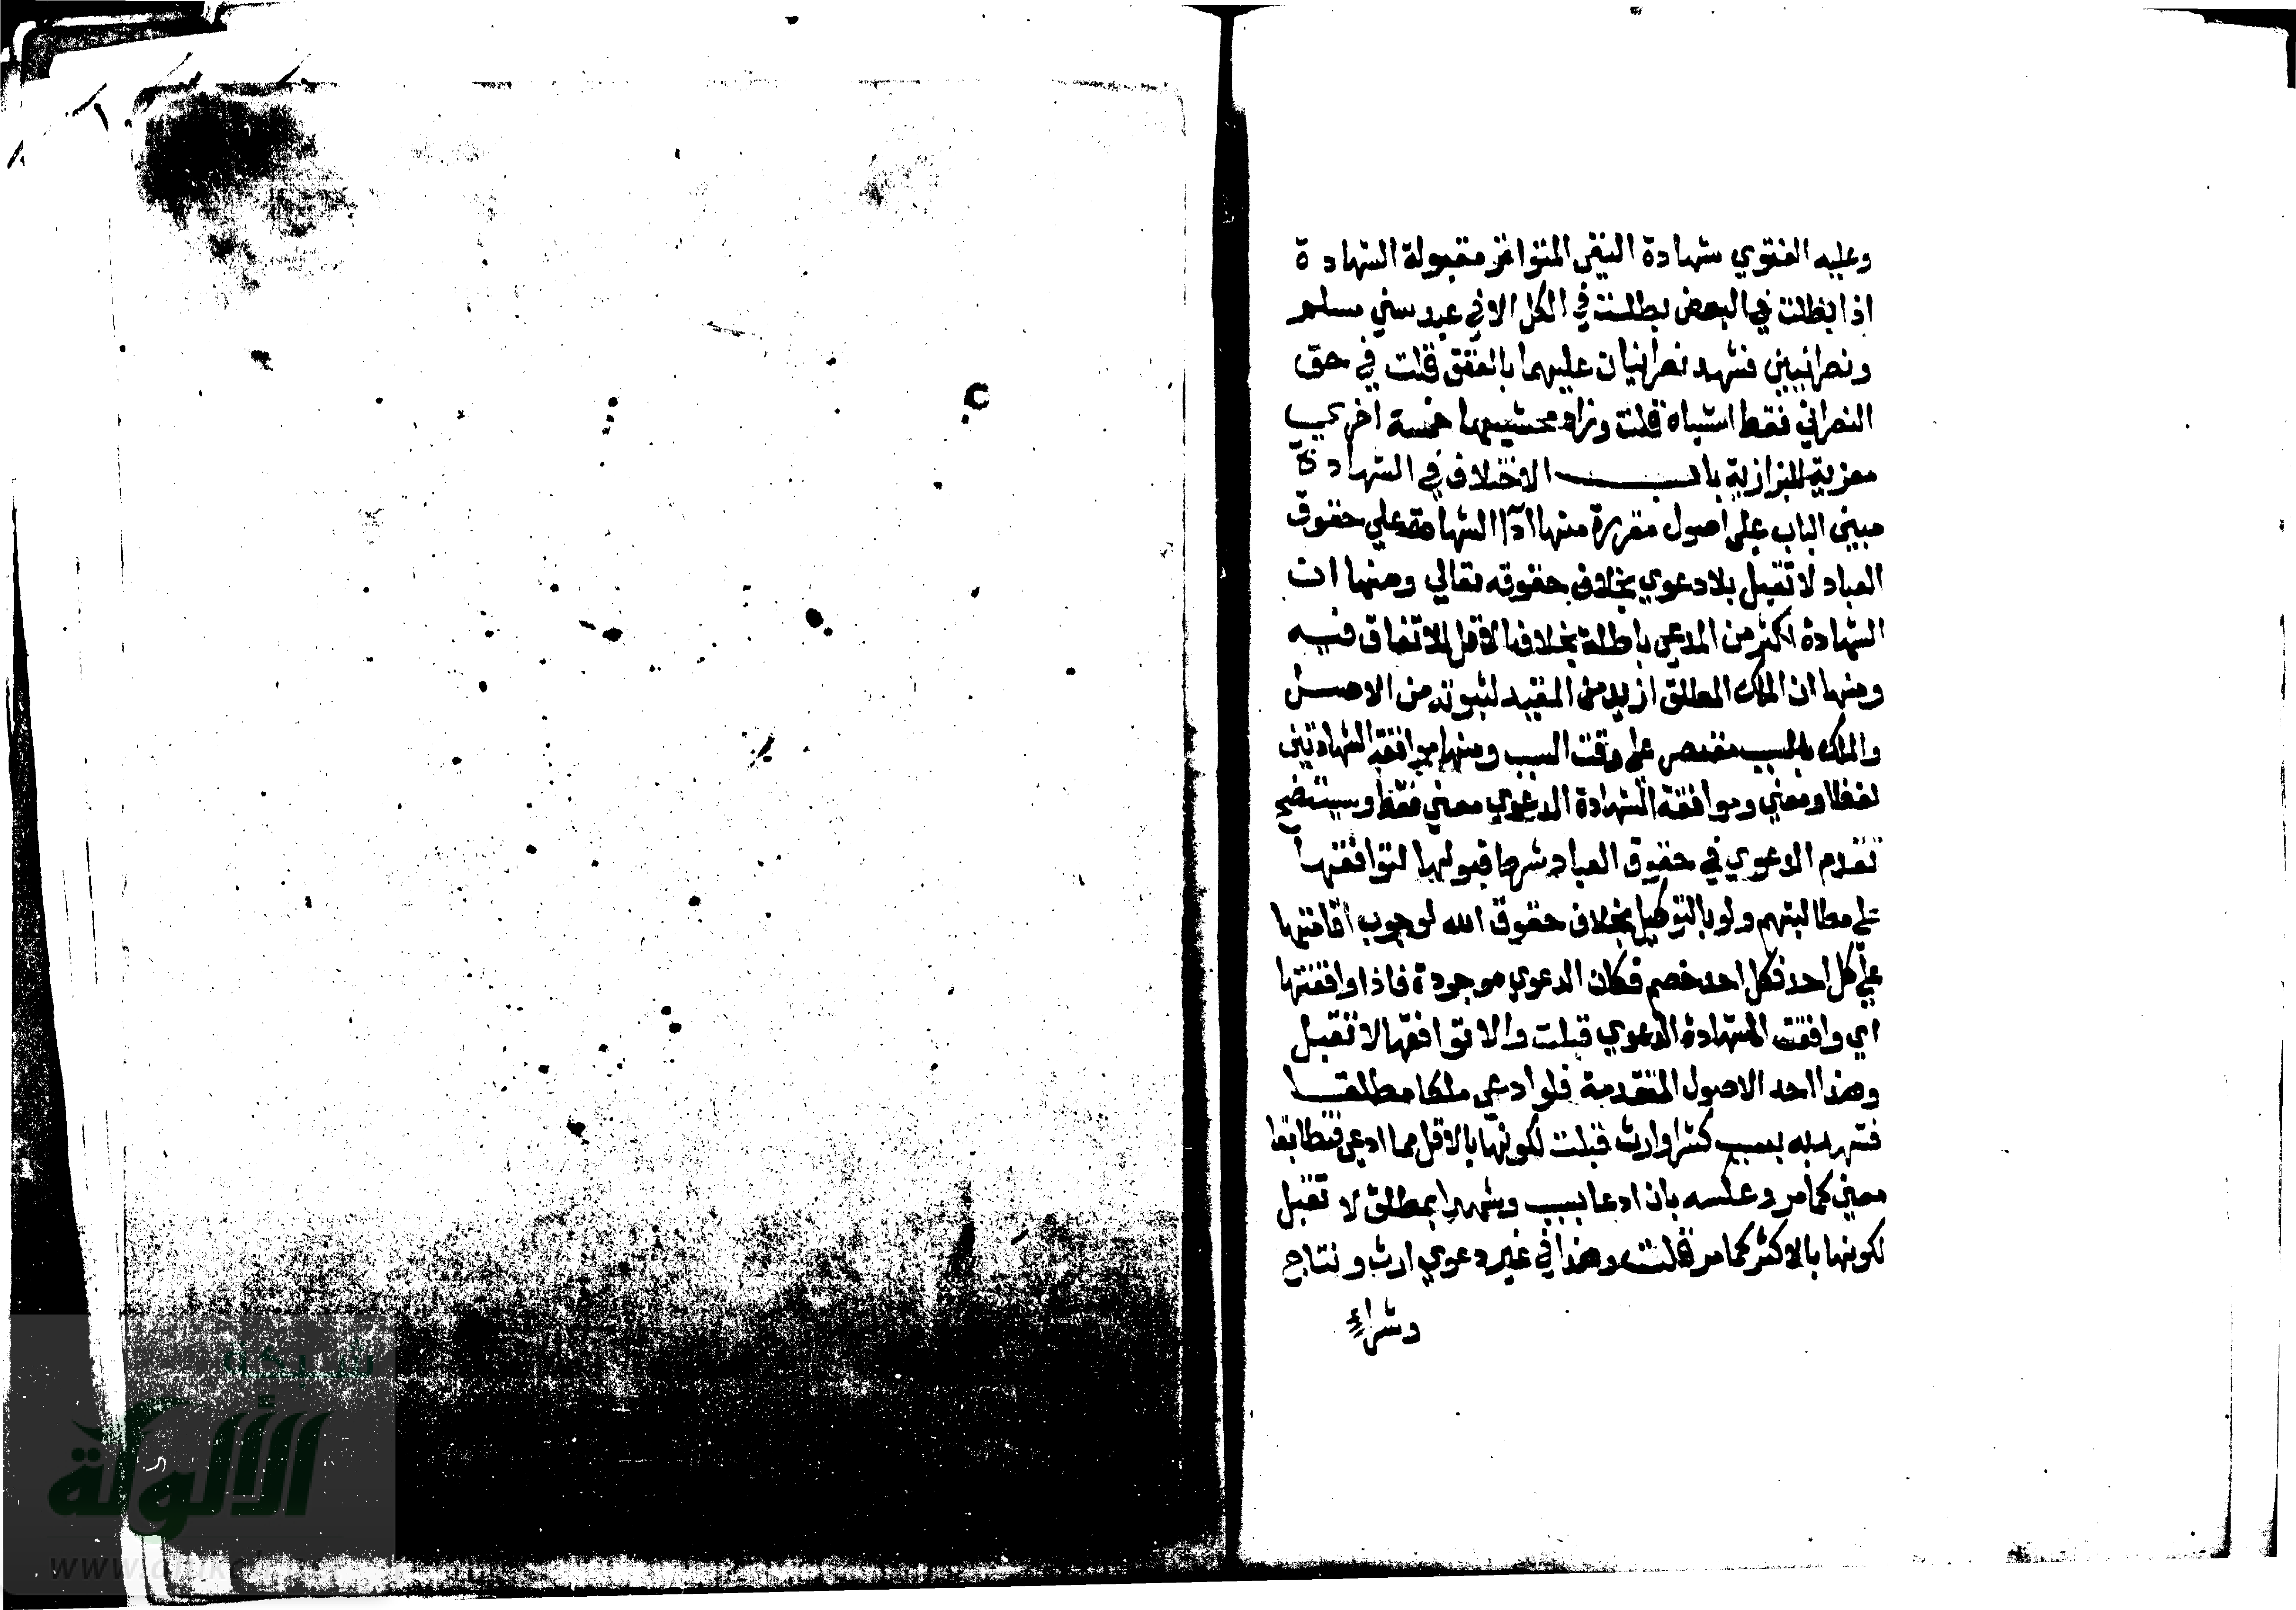 وعليه الفتوي شهادة النفي المتواتر مقبولة الشهادة
اذا بطلت في البعض بطلت في الكل الا في عبد بين مسلم
ونصرانيين فشهد نصرانيان عليهما بالعتق قبلت في حق
النصراني فقط اشباه قلت وزاد محشيها خمسة اخري
معزية للبزازية باب الاختلاف في الشهادة
مبني الباب علي اصول مقررة منها ان الشهادة علي حقوق
العباد لا تقبل بلا دعوي بخلاف حقوقه تعالي ومنها ان
الشهادة اكثر من المدعي باطلة بخلاف الاقل للاتفاق فيه
ومنها ان الملك المطلق ازيد من المقيد لثبوته من الاصل
والملك بالسبب مقتصر علي وقت السبب ومنها موافقة الشهادتين
لفظا ومعني وموافقة الشهادة الدعوي معني فقط وسيتضح
تقدم الدعوي في حقوق العباد شرط قبولها لتوافقها
علي مطالبتهم ولو بالتوكيل بخلاف حقوق الله لوجوب اقامتها
علي كل احد فكل احد خصم فكان الدعوي موجودة فاذا وافقتها
اي وافقت الشهادة الدعوي قبلت والا توافقها لا تقبل
وهذا احد الاصول المتقدمة فلو ادعي ملكا مطلقا
فشهد به بسبب كشرا وارث قبلت لكونها بالاقل مما ادعي فتطابقا
معني كما مر وعكسه بان ادعا بسبب وشهدا بمطلق لا تقبل
لكونها بالاكثر كما مر قلت وهذا في غير دعوي ارث ونتاج
وشراء
شبكة
الألوكة